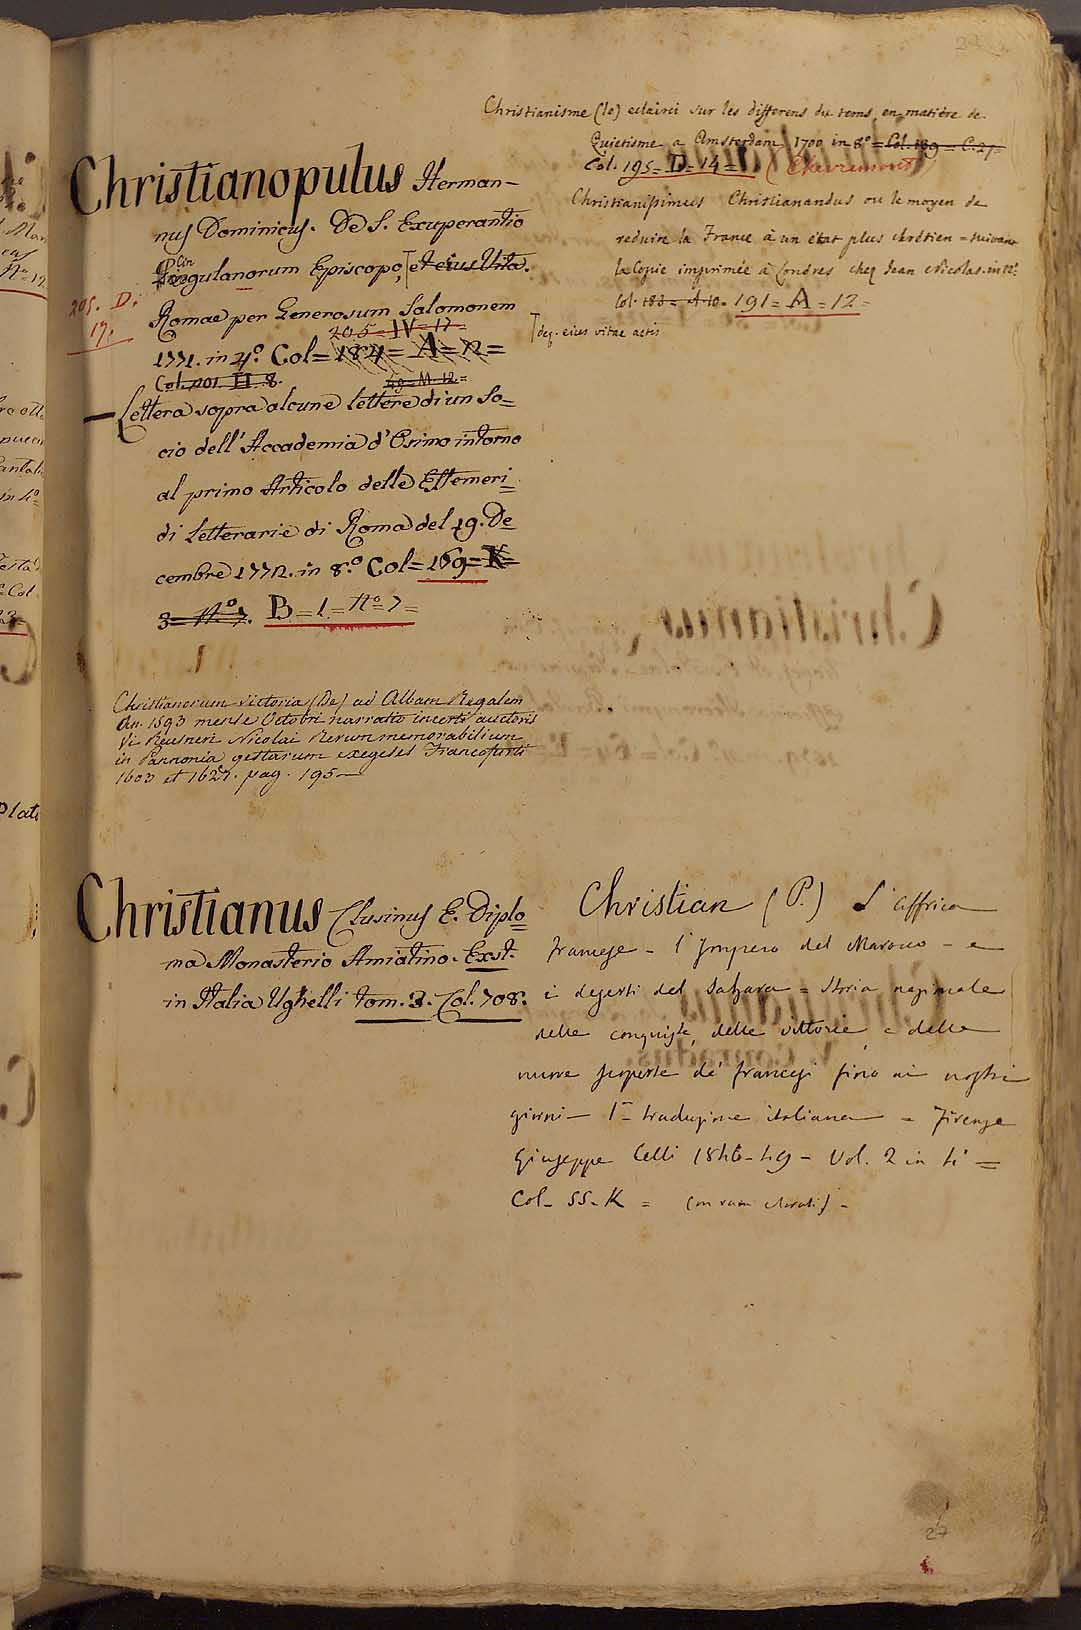 Christianopulus Herman-
nus Dominicus. De S. Exuperantio
Cingulanorum Episcopo, et eius Vita.
Romae per Generosum Salomonem
205 = IV = 17 =
1771. in 4.º Col = 184 = A = 12 =
Col. 201. H. 8. 49 = M. 12 =
205. D.
17.
— Lettera sopra alcune lettere di un So=
cio dell' Accademia d' Osimo intorno
al primo Articolo delle Effemeri=
di Letterarie di Roma del 19. De=
cembre 1772. in 8.º Col = 169 = K =
3 = Nº 7. B = 1 = Nº 7 =
Christianorum victoria (De) ad Albam Regalem
An. 1593 mense Octobri narratio incerti auctoris
Vi Reusneri Nicolai Rerum memorabilium
in Pannonia gestarum exegeses Francofurti
1603 et 1627. pag. 195 —
Christianus Clusinus E. Diplo=
ma Monasterio Amiatino. Exst.
in Italia Ughelli tom. 3. Col. 708.
Christianisme (le) eclairci sur les differens du tems, en matière de
Quietisme a Amsterdam 1700 in 8º = Col. 189 = C. 27 =
Col. 195 = D = 14 = (Chevremont)
Christianissimus Christianandus ou le moyen de
reduire la France à un état plus chrétien = suivant
la Copie imprimée à Londres chez Jean Nicolas. in 12º
Col. 183 = A. 10. 191 = A = 12 =
deq. eius vitae actis
Christian (P.) L'Affrica
francese - l'Impero del Marocco - e
i deserti del Sahara = Storia nazionale
delle conquiste, delle vittorie e delle
nuove scoperte de' francesi fino ai nostri
giorni - 1ª traduzione italiana = Firenze
Giuseppe Celli 1846-49 - Vol. 2 in 4º =
Col. SS. K = (con rami colorati) -
27